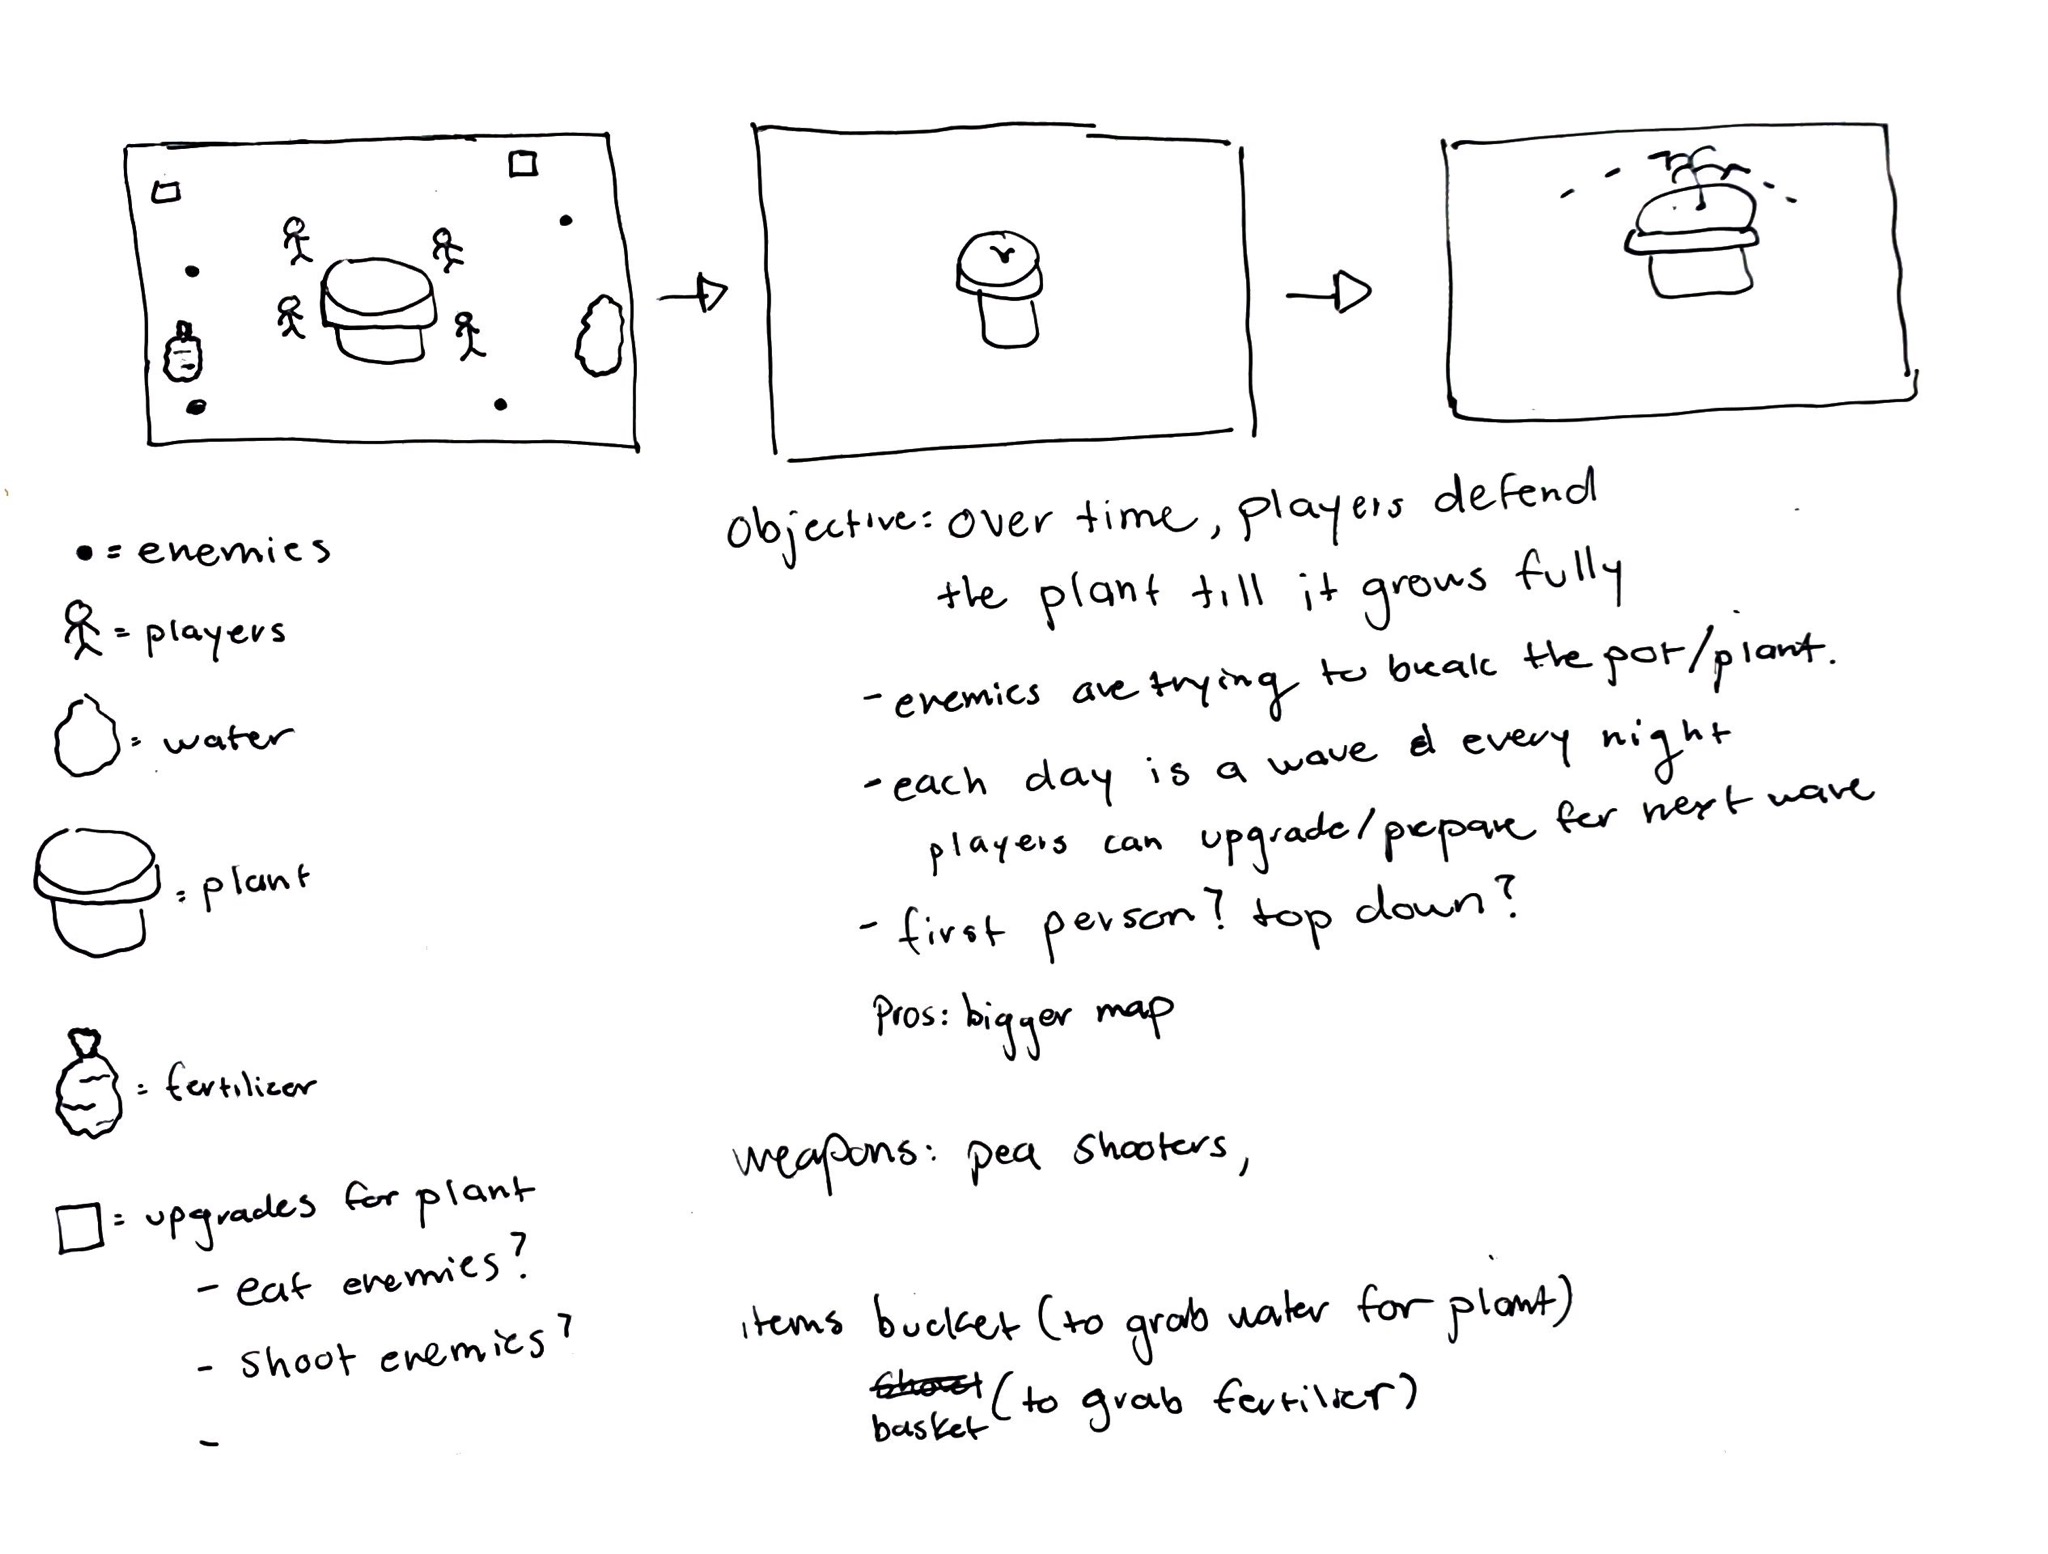 • = enemies
= players
= water
= plant
= fertilizer
= upgrades for plant
- eat enemies?
- shoot enemies?
-
Objective: over time, players defend
the plant till it grows fully
- enemies are trying to break the pot/plant.
- each day is a wave & every night
players can upgrade/prepare for next wave
- first person? top down?
Pros: bigger map
weapons: pea shooters,
items bucket (to grab water for plant)
(to grab fertilizer)
basket